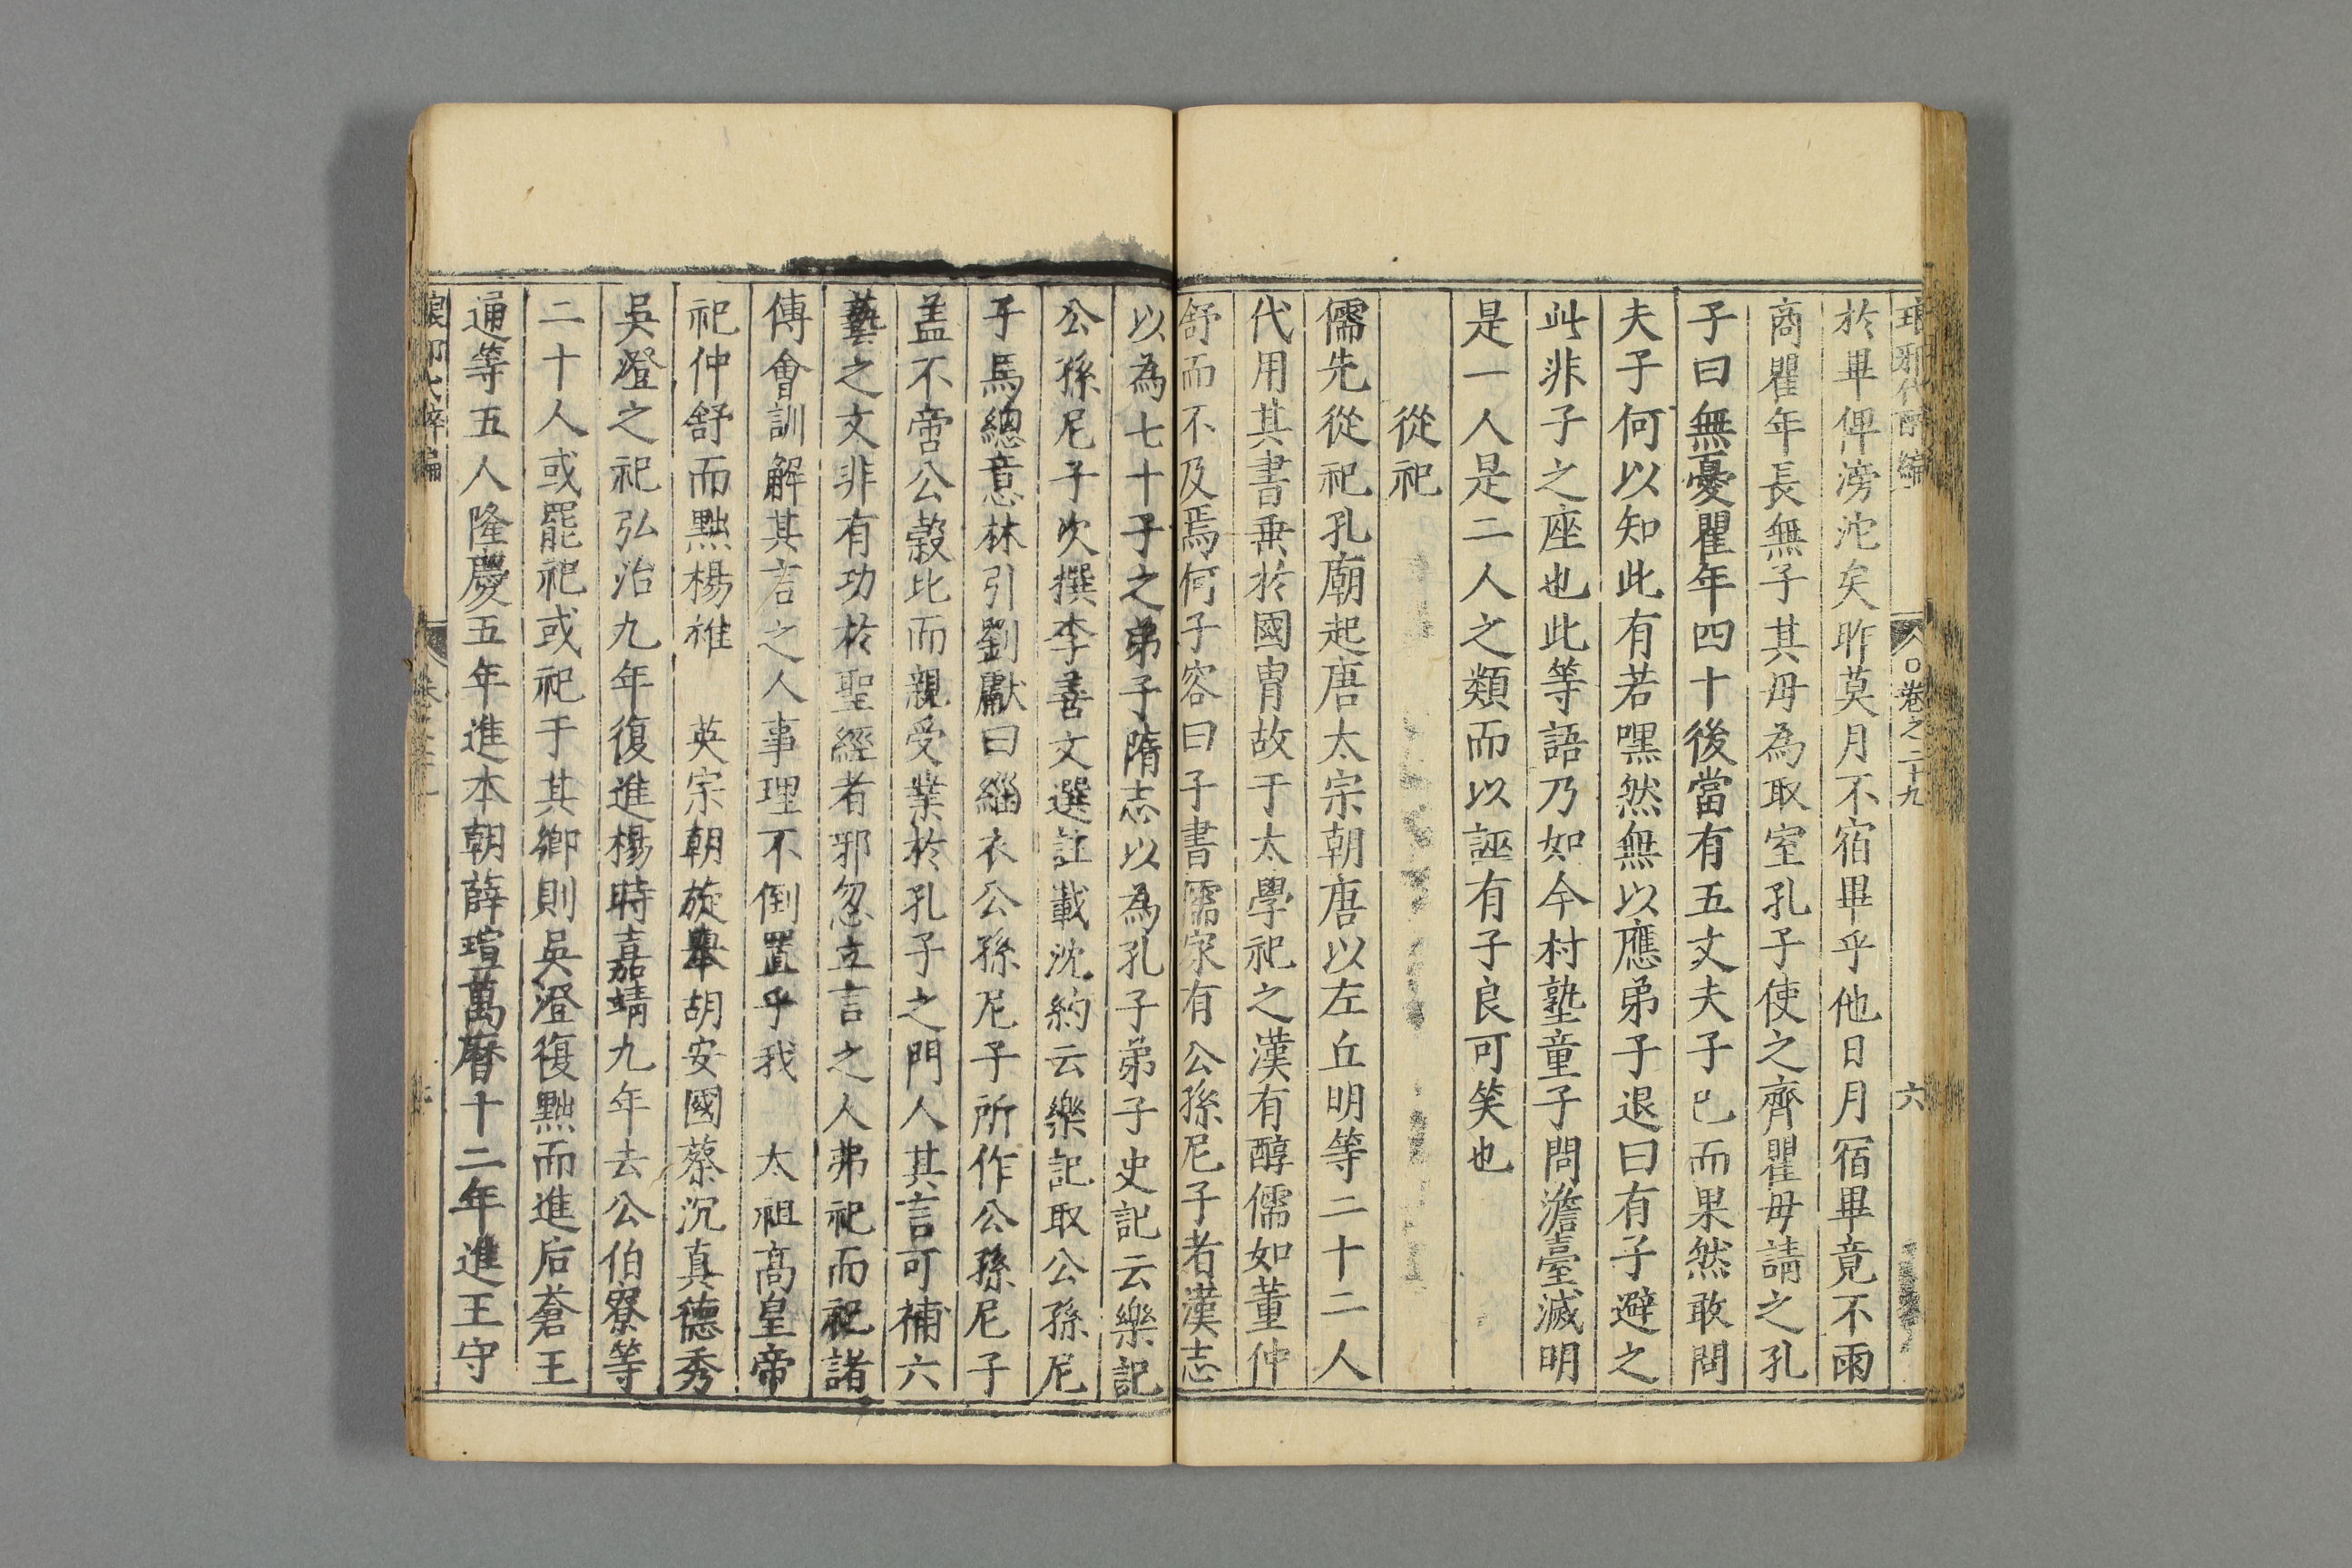 琅邪代醉編 卷之二十九 六
於畢俾滂沱矣昨莫月不宿畢乎他日月宿畢竟不雨
商瞿年長無子其母為取室孔子使之齊瞿母請之孔
子曰無憂瞿年四十後當有五丈夫子已而果然敢問
夫子何以知此有若嘿然無以應弟子退曰有子避之
此非子之座也此等語乃如今村塾童子問澹臺滅明
是一人是二人之類而以誣有子良可笑也
從祀
儒先從祀孔廟起唐太宗朝唐以左丘明等二十二人
代用其書垂於國冑故于太學祀之漢有醇儒如董仲
舒而不及焉何子容曰子書儒家有公孫尼子者漢志
以為七十子之弟子隋志以為孔子弟子史記云樂記
公孫尼子次撰李善文選註載沈約云樂記取公孫尼
子馬總意林引劉瓛曰緇衣公孫尼子所作公孫尼子
盖不啻公穀比而親受業於孔子之門人其言可補六
藝之文非有功於聖經者邪忽立言之人弗祀而祀諸
傳會訓解其言之人事理不倒置乎我 太祖高皇帝
祀仲舒而黜楊雄 英宗朝旋舉胡安國蔡沉真德秀
吳澄之祀弘治九年復進楊時嘉靖九年去公伯寮等
二十人或罷祀或祀于其鄉則吳澄復黜而進后蒼王
通等五人隆慶五年進本朝薛瑄萬曆十二年進王守